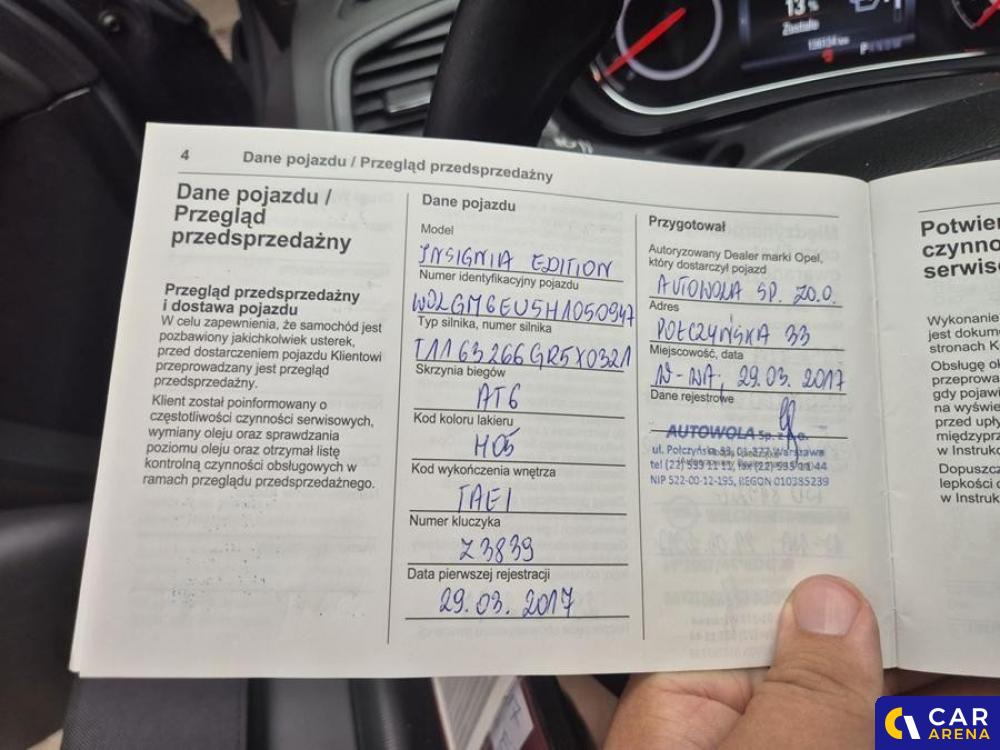 13 %
Zostało
4
Dane pojazdu / Przegląd przedsprzedażny
Dane pojazdu /
Przegląd
przedsprzedażny
Przegląd przedsprzedażny
i dostawa pojazdu
W celu zapewnienia, że samochód jest
pozbawiony jakichkolwiek usterek,
przed dostarczeniem pojazdu Klientowi
przeprowadzany jest przegląd
przedsprzedażny.
Klient został poinformowany o
częstotliwości czynności serwisowych,
wymiany oleju oraz sprawdzania
poziomu oleju oraz otrzymał listę
kontrolną czynności obsługowych w
ramach przeglądu przedsprzedażnego.
Dane pojazdu
Model
INSIGNIA EDITION
Numer identyfikacyjny pojazdu
W0LGM6EU5H1050947
Typ silnika, numer silnika
T1163266GR5X0321
Skrzynia biegów
AT6
Kod koloru lakieru
H05
Kod wykończenia wnętrza
TAEI
Numer kluczyka
Z3839
Data pierwszej rejestracji
29.03.2017
Przygotował
Autoryzowany Dealer marki Opel,
który dostarczył pojazd
AUTOWOLA SP. ZO.O.
Adres
POŁCZYŃSKA 33
Miejscowość, data
W-WA, 29.03.2017
Dane rejestrowe
AUTOWOLA Sp. z o.o.
ul. Połczyńska 33, 01-377 Warszawa
tel (22) 533 11 11, fax (22) 535 01 44
NIP 522-00-12-195, REGON 010385239
Potwier
czynno
serwisc
Wykonanie
jest dokum
stronach K
Obsługę ok
przeprowa
gdy pojawi
na wyświe
przed upły
międzyprz
w Instrukc
Dopuszcz
lepkości o
w Instruk
CAR
ARENA